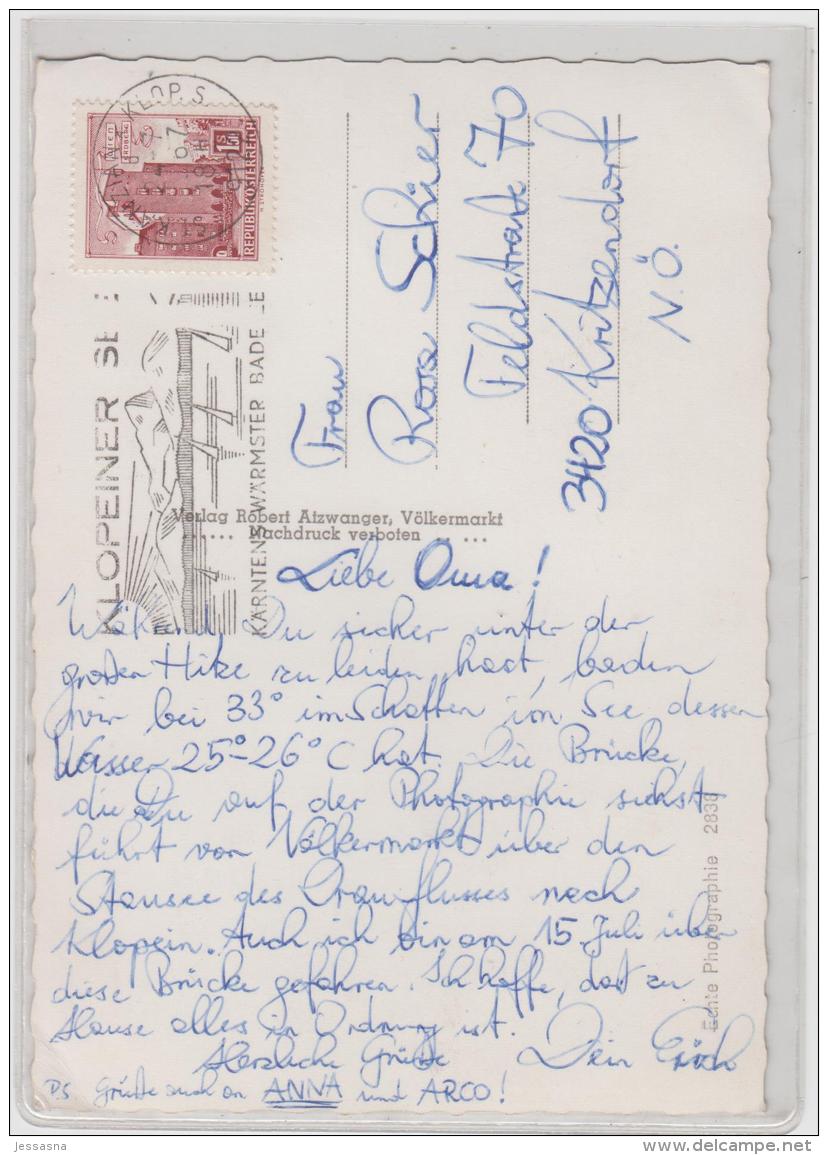 KLOP.S
WIEN
ERDBERG
1.50
REPUBLIK ÖSTERREICH
KLOPEINER SE
KÄRNTENS WÄRMSTER BADE E
Frau
Rosa Schier
Feldstraße 70
3420 Kritzendorf
N.Ö.
Verlag Robert Atzwanger, Völkermarkt
Nachdruck verboten
Liebe Oma!
Während Du sicher unter der
großen Hitze zu leiden hast, baden
wir bei 33° im Schatten im See dessen
Wasser 25°-26°C hat. Die Brücke,
die Du auf der Photographie siehst
führt von Völkermarkt über den
Stausee des Drauflusses nach
Klopein. Auch ich bin am 15. Juli über
diese Brücke gefahren. Ich hoffe, daß zu
Hause alles in Ordnung ist.
Herzliche Grüße Dein Erich
P.S Grüße auch an ANNA und ARCO!
Echte Photographie 2838
jessasna
www.delcampe.net